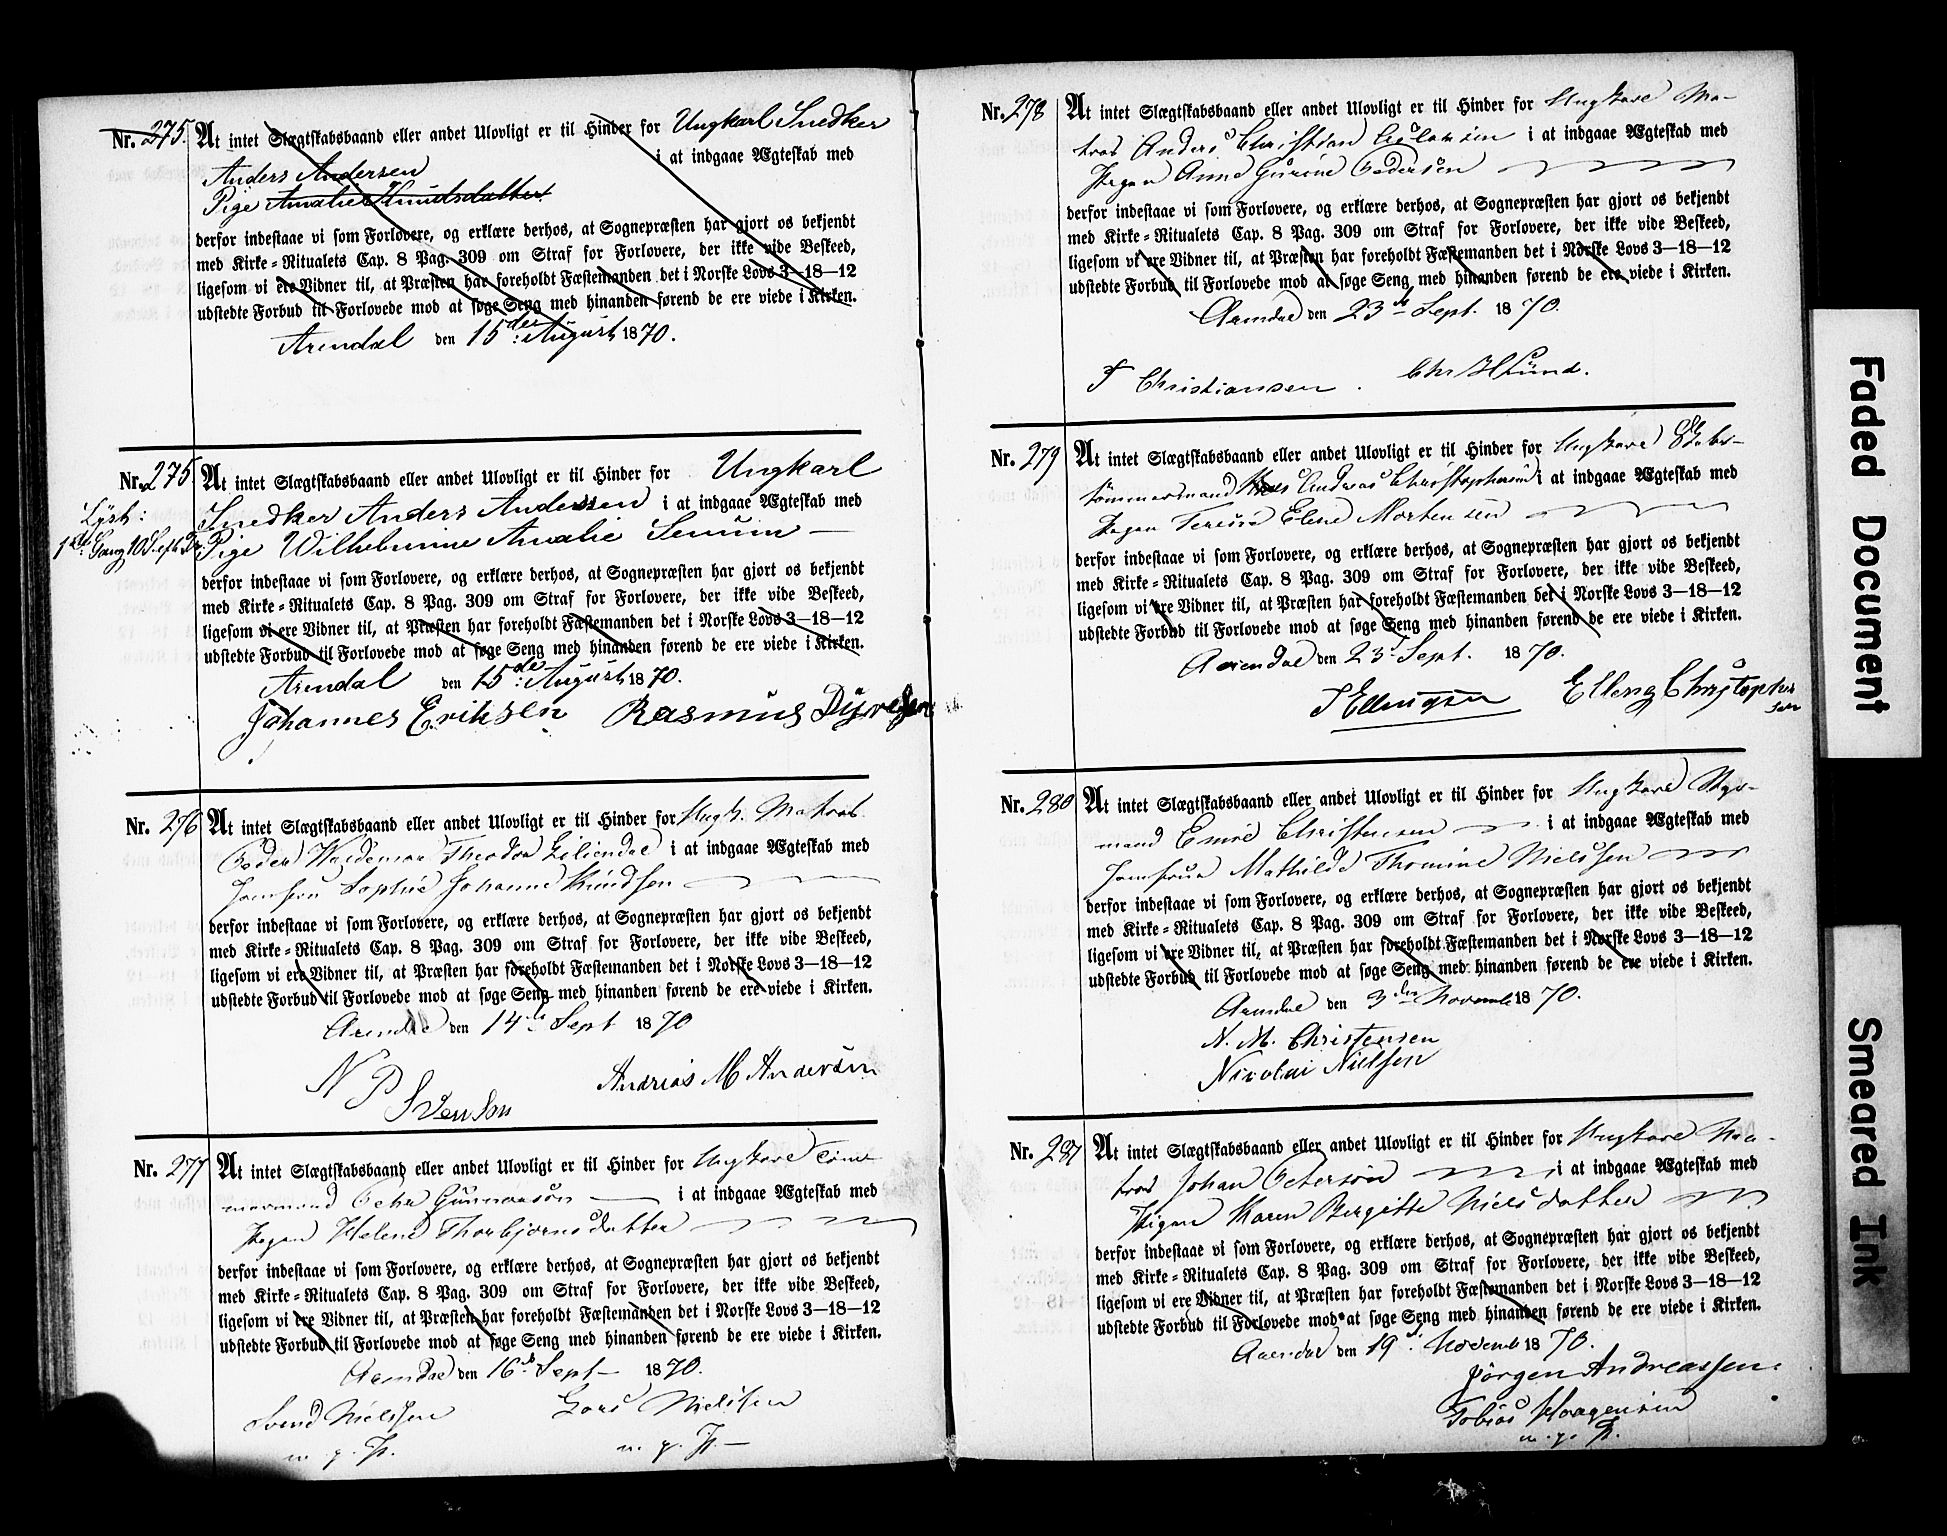 Nr. 275. At intet Slægtskabsbaand eller andet Ulovligt er til Hinder for Ungkarl Snedker
Anders Andersen i at indgaae Ægteskab med
Pige Amalie Knudsdatter
derfor indestaae vi som Forlovere, og erklære derhos, at Sognepræsten har gjort os bekjendt
med Kirke-Ritualets Cap. 8 Pag. 309 om Straf for Forlovere, der ikke vide Beskeed,
ligesom vi ere Vidner til, at Præsten har foreholdt Fæstemanden det i Norske Lovs 3—18—12
udstedte Forbud til Forlovede mod at søge Seng med hinanden førend de ere viede i Kirken.
Arendal den 15de August 1870.
Nr. 275 At intet Slægtskabsbaand eller andet Ulovligt er til Hinder for Ungkarl
Lyst:
Snedker Anders Andersen i at indgaae Ægteskab med
1ste Gang 10 Septbr.
Pige Wilhelmine Amalie Senum —
derfor indestaae vi som Forlovere, og erklære derhos, at Sognepræsten har gjort os bekjendt
med Kirke-Ritualets Cap. 8 Pag. 309 om Straf for Forlovere, der ikke vide Beskeed,
ligesom vi ere Vidner til, at Præsten har foreholdt Fæstemanden det i Norske Lovs 3—18—12
udstedte Forbud til Forlovede mod at søge Seng med hinanden førend de ere viede i Kirken.
Arendal den 15de August 1870.
Johannes Eriksen Rasmus Dyresen
Nr. 276 At intet Slægtskabsbaand eller andet Ulovligt er til Hinder for Ungk. Matros
Peder Waldemar Theodor Liliendal i at indgaae Ægteskab med
Jomfru Sophie Johanne Knudsen
derfor indestaae vi som Forlovere, og erklære derhos, at Sognepræsten har gjort os bekjendt
med Kirke-Ritualets Cap. 8 Pag. 309 om Straf for Forlovere, der ikke vide Beskeed,
ligesom vi ere Vidner til, at Præsten har foreholdt Fæstemanden det i Norske Lovs 3—18—12
udstedte Forbud til Forlovede mod at søge Seng med hinanden førend de ere viede i Kirken.
Arendal den 14de Sept 1870
N P Svensen Andreas M Andersen
Nr. 277 At intet Slægtskabsbaand eller andet Ulovligt er til Hinder for Ungkarl Tøm-
mermand Peder Gunnarsøn i at indgaae Ægteskab med
Pigen Helene Thorbjørnsdatter
derfor indestaae vi som Forlovere, og erklære derhos, at Sognepræsten har gjort os bekjendt
med Kirke-Ritualets Cap. 8 Pag. 309 om Straf for Forlovere, der ikke vide Beskeed,
ligesom vi ere Vidner til, at Præsten har foreholdt Fæstemanden det i Norske Lovs 3—18—12
udstedte Forbud til Forlovede mod at søge Seng med hinanden førend de ere viede i Kirken.
Arendal den 16de Sept 1870.
Svend Nielssen Lars Nielsen
m. p. P. m. p. P.
Nr. 278 At intet Slægtskabsbaand eller andet Ulovligt er til Hinder for Ungkarl Ma-
tros Anders Christian i at indgaae Ægteskab med
Pigen Anne Gurine Pedersen
derfor indestaae vi som Forlovere, og erklære derhos, at Sognepræsten har gjort os bekjendt
med Kirke-Ritualets Cap. 8 Pag. 309 om Straf for Forlovere, der ikke vide Beskeed,
ligesom vi ere Vidner til, at Præsten har foreholdt Fæstemanden det i Norske Lovs 3—18—12
udstedte Forbud til Forlovede mod at søge Seng med hinanden førend de ere viede i Kirken.
Arendal den 23de Sept. 1870.
T Christiansen. Chr H Lund.
Nr. 279 At intet Slægtskabsbaand eller andet Ulovligt er til Hinder for Ungkarl Skibs-
tømmermand Andreas Christophersen i at indgaae Ægteskab med
Pigen Terese Elene Mortensen
derfor indestaae vi som Forlovere, og erklære derhos, at Sognepræsten har gjort os bekjendt
med Kirke-Ritualets Cap. 8 Pag. 309 om Straf for Forlovere, der ikke vide Beskeed,
ligesom vi ere Vidner til, at Præsten har foreholdt Fæstemanden det i Norske Lovs 3—18—12
udstedte Forbud til Forlovede mod at søge Seng med hinanden førend de ere viede i Kirken.
Arendal den 23de Sept. 1870.
T Ellingsen Elleng Christopher
sen
Nr. 280 At intet Slægtskabsbaand eller andet Ulovligt er til Hinder for Ungkarl Styr-
mand Christensen i at indgaae Ægteskab med
Jomfrue Mathilde Thomine Nielssen
derfor indestaae vi som Forlovere, og erklære derhos, at Sognepræsten har gjort os bekjendt
med Kirke-Ritualets Cap. 8 Pag. 309 om Straf for Forlovere, der ikke vide Beskeed,
ligesom vi ere Vidner til, at Præsten har foreholdt Fæstemanden det i Norske Lovs 3—18—12
udstedte Forbud til Forlovede mod at søge Seng med hinanden førend de ere viede i Kirken.
Arendal den 3die Novemb 1870.
N. M. Christensen
Nicolai Nielsen
Nr. 281 At intet Slægtskabsbaand eller andet Ulovligt er til Hinder for Ungkarl Ma-
tros Johan Petersøn i at indgaae Ægteskab med
Pigen Karen Bergitte Nielsdatter
derfor indestaae vi som Forlovere, og erklære derhos, at Sognepræsten har gjort os bekjendt
med Kirke-Ritualets Cap. 8 Pag. 309 om Straf for Forlovere, der ikke vide Beskeed,
ligesom vi ere Vidner til, at Præsten har foreholdt Fæstemanden det i Norske Lovs 3—18—12
udstedte Forbud til Forlovede mod at søge Seng med hinanden førend de ere viede i Kirken.
Arendal den 19d. Novemb 1870.
Jørgen Andreassen.
Tobias Haagensen
m. p. P.
Faded Document
Smeared Ink